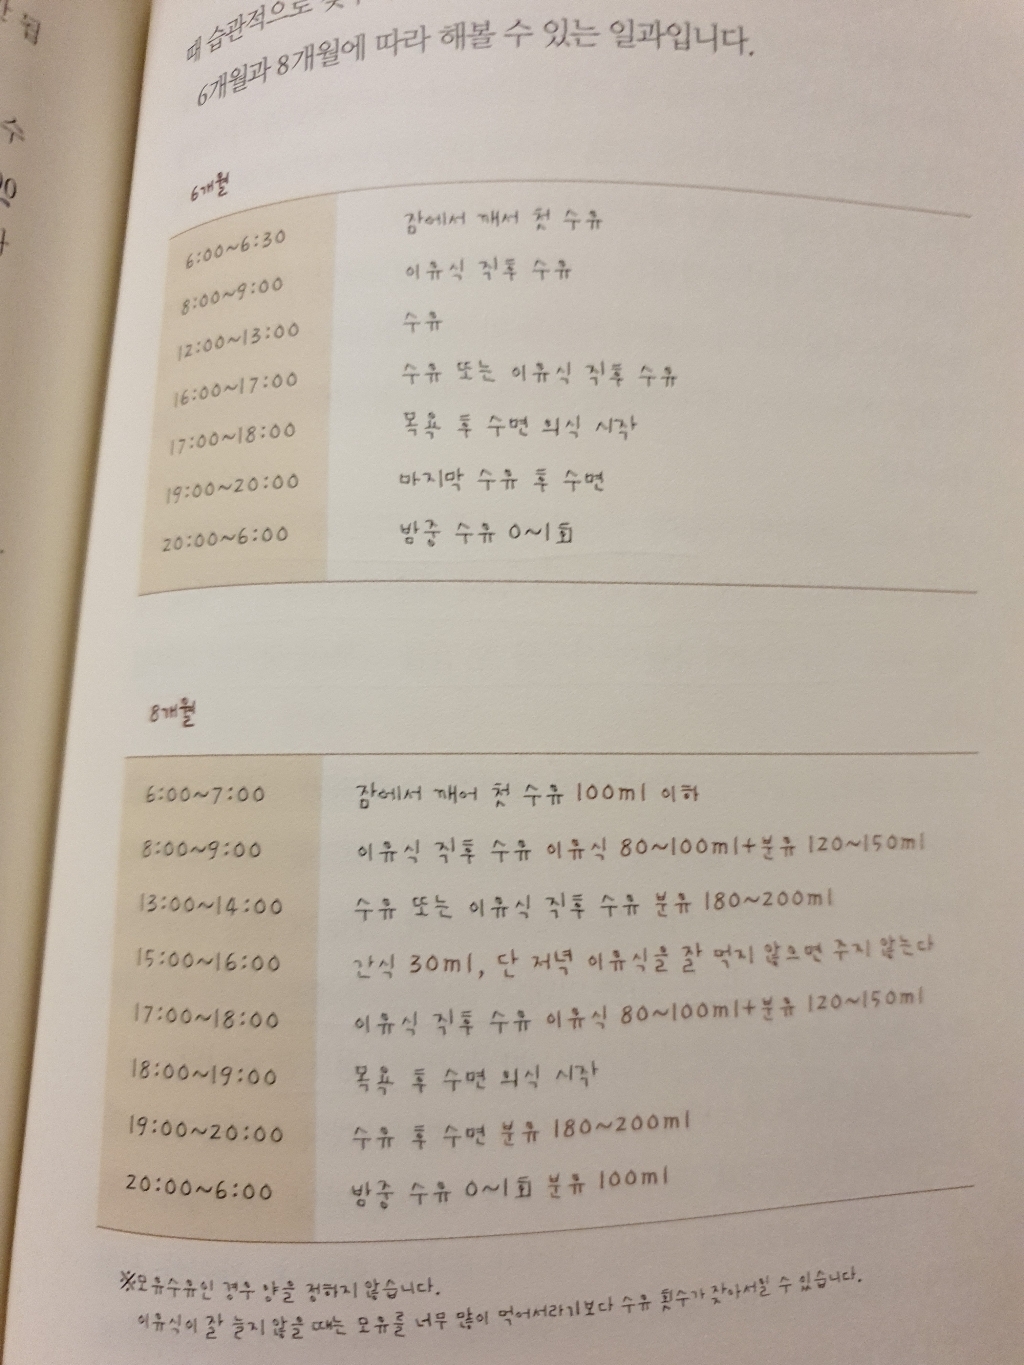 때 습관적으로
6개월과 8개월에 따라 해볼 수 있는 일과입니다.
6개월
6:00~6:30 잠에서 깨서 첫 수유
8:00~9:00 이유식 직후 수유
12:00~13:00 수유
16:00~17:00 수유 또는 이유식 직후 수유
17:00~18:00 목욕 후 수면 의식 시작
19:00~20:00 마지막 수유 후 수면
20:00~6:00 밤중 수유 0~1회
8개월
6:00~7:00 잠에서 깨어 첫 수유 100ml 이하
8:00~9:00 이유식 직후 수유 이유식 80~100ml+분유 120~150ml
13:00~14:00 수유 또는 이유식 직후 수유 분유 180~200ml
15:00~16:00 간식 30ml, 단 저녁 이유식을 잘 먹지 않으면 주지 않는다
17:00~18:00 이유식 직후 수유 이유식 80~100ml+분유 120~150ml
18:00~19:00 목욕 후 수면 의식 시작
19:00~20:00 수유 후 수면 분유 180~200ml
20:00~6:00 밤중 수유 0~1회 분유 100ml
※모유수유인 경우 양을 정하지 않습니다.
이유식이 잘 늘지 않을 때는 모유를 너무 많이 먹어서라기보다 수유 횟수가 잦아서일 수 있습니다.